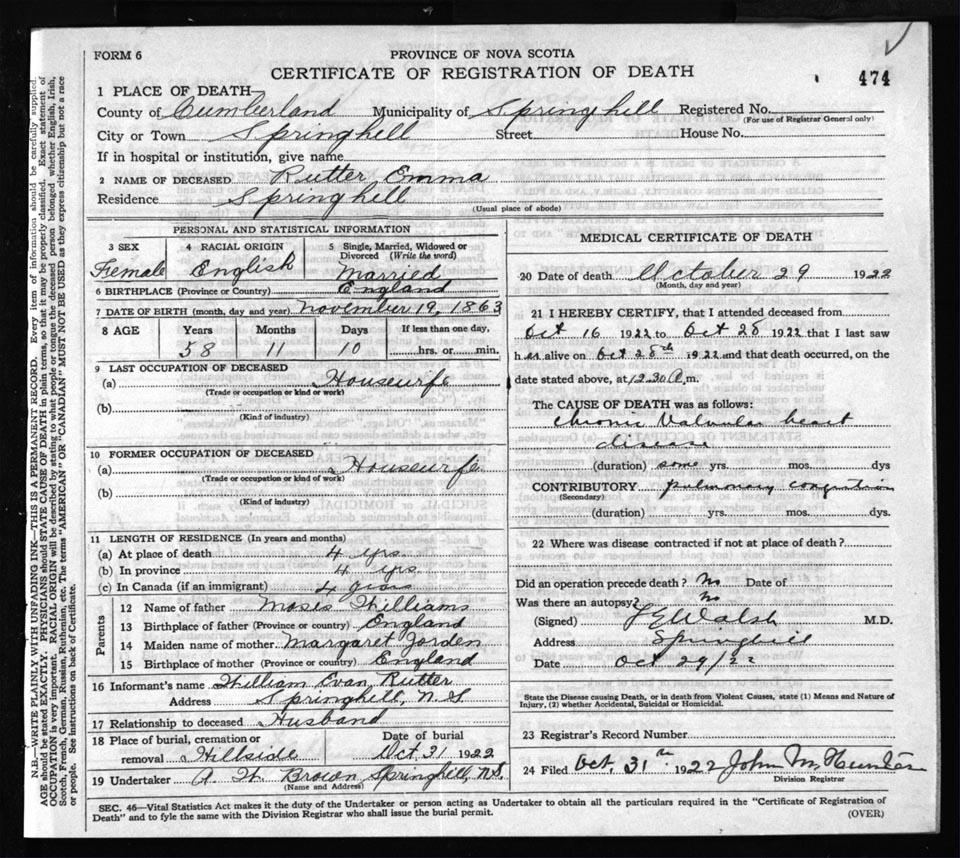 FORM 6
PROVINCE OF NOVA SCOTIA
CERTIFICATE OF REGISTRATION OF DEATH
474
1 PLACE OF DEATH
County of Cumberland Municipality of Springhill Registered No.
(For use of Registrar General only)
City or Town Springhill Street House No.
If in hospital or institution, give name
2 NAME OF DECEASED Rutter Emma
Residence Springhill
(Usual place of abode)
PERSONAL AND STATISTICAL INFORMATION
3 SEX 4 RACIAL ORIGIN 5 Single, Married, Widowed or Divorced (Write the word)
Female English Married
6 BIRTHPLACE (Province or Country) England
7 DATE OF BIRTH (month, day and year) November 19, 1863
8 AGE Years Months Days If less than one day,
58 11 10 hrs. or min.
9 LAST OCCUPATION OF DECEASED
(a) Housewife
(Trade or occupation or kind of work)
(b)
(Kind of industry)
10 FORMER OCCUPATION OF DECEASED
(a) Housewife
(Trade or occupation or kind of work)
(b)
(Kind of industry)
11 LENGTH OF RESIDENCE (In years and months)
(a) At place of death 4 yrs
(b) In province 4 yrs
(c) In Canada (if an immigrant) 4 years
Parents
12 Name of father Moses Williams
13 Birthplace of father (Province or country) England
14 Maiden name of mother Margaret Jorden
15 Birthplace of mother (Province or country) England
16 Informant's name William Evan Rutter
Address Springhill, N.S.
17 Relationship to deceased Husband
18 Place of burial, cremation or removal Hillside Date of burial Oct 31 1922
19 Undertaker A. W. Brown, Springhill, N.S.
(Name and Address)
MEDICAL CERTIFICATE OF DEATH
20 Date of death October 29 1922
(Month, day and year)
21 I HEREBY CERTIFY, that I attended deceased from
Oct 16 1922 to Oct 28 1922 that I last saw
her alive on Oct 28th 1922 and that death occurred, on the
date stated above, at 12.30 A.m.
The CAUSE OF DEATH was as follows:
Chronic Valvular heart
disease
(duration) some yrs. mos. dys
CONTRIBUTORY pulmonary congestion
(Secondary)
(duration) yrs. mos. dys.
22 Where was disease contracted if not at place of death?
Did an operation precede death? No Date of
Was there an autopsy? No
(Signed) Walsh M.D.
Address Springhill
Date Oct 29/22
State the Disease causing Death, or in death from Violent Causes, state (1) Means and Nature of
Injury, (2) whether Accidental, Suicidal or Homicidal.
23 Registrar's Record Number
24 Filed Oct, 31th 1922 John M. Hunter
Division Registrar
SEC. 46—Vital Statistics Act makes it the duty of the Undertaker or person acting as Undertaker to obtain all the particulars required in the "Certificate of Registration of
Death" and to fyle the same with the Division Registrar who shall issue the burial permit.
(OVER)
N.B.—WRITE PLAINLY WITH UNFADING INK—THIS IS A PERMANENT RECORD. Every item of information should be carefully supplied.
AGE should be stated EXACTLY. PHYSICIANS should STATE CAUSE OF DEATH in plain terms, so that it may be properly classified. Exact statement of
OCCUPATION is very important. RACIAL ORIGIN will be described by stating to what people or tongue the deceased person belonged whether English, Irish,
Scotch, French, German, Russian, Ruthenian, etc. The terms "AMERICAN" or "CANADIAN" MUST NOT BE USED as they express citizenship but not a race
or people. See instructions on back of Certificate.